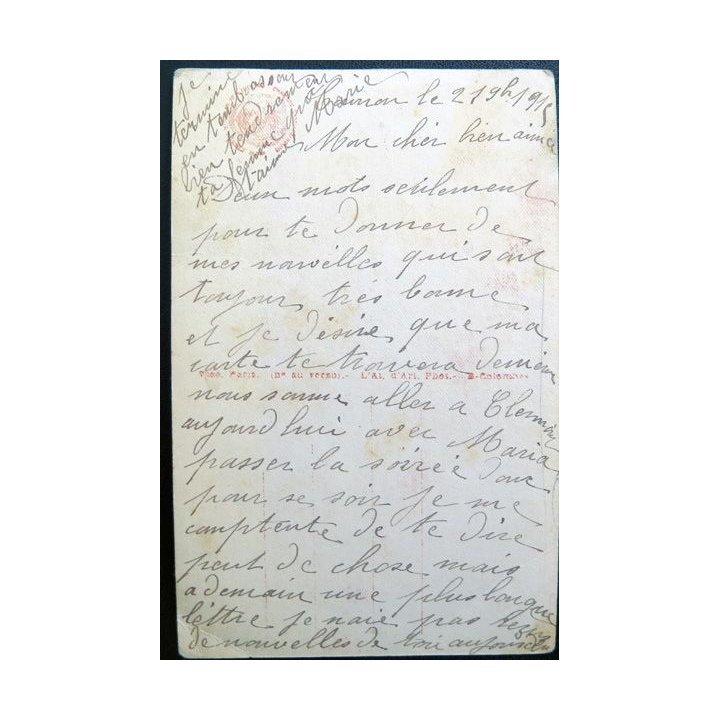 le 21 9bre 1915
Mon cher bien aimé
Deux mots seulement
pour te donner de
mes nouvelles qui sont
toujour très bonne
et je désire que ma
carte te trouvera de même
(N° au verso).- L'At. d'Art. Phot.-
nous somme aller a
aujourd'hui avec Maria
passer la soirée donc
pour se soir je me
comptente de te dire
peut de chose mais
a demain une plus longue
lettre je naie pas
de nouvelles de toi
je
termine
en
bien tendrement
ta femme qui
t'aime Marie